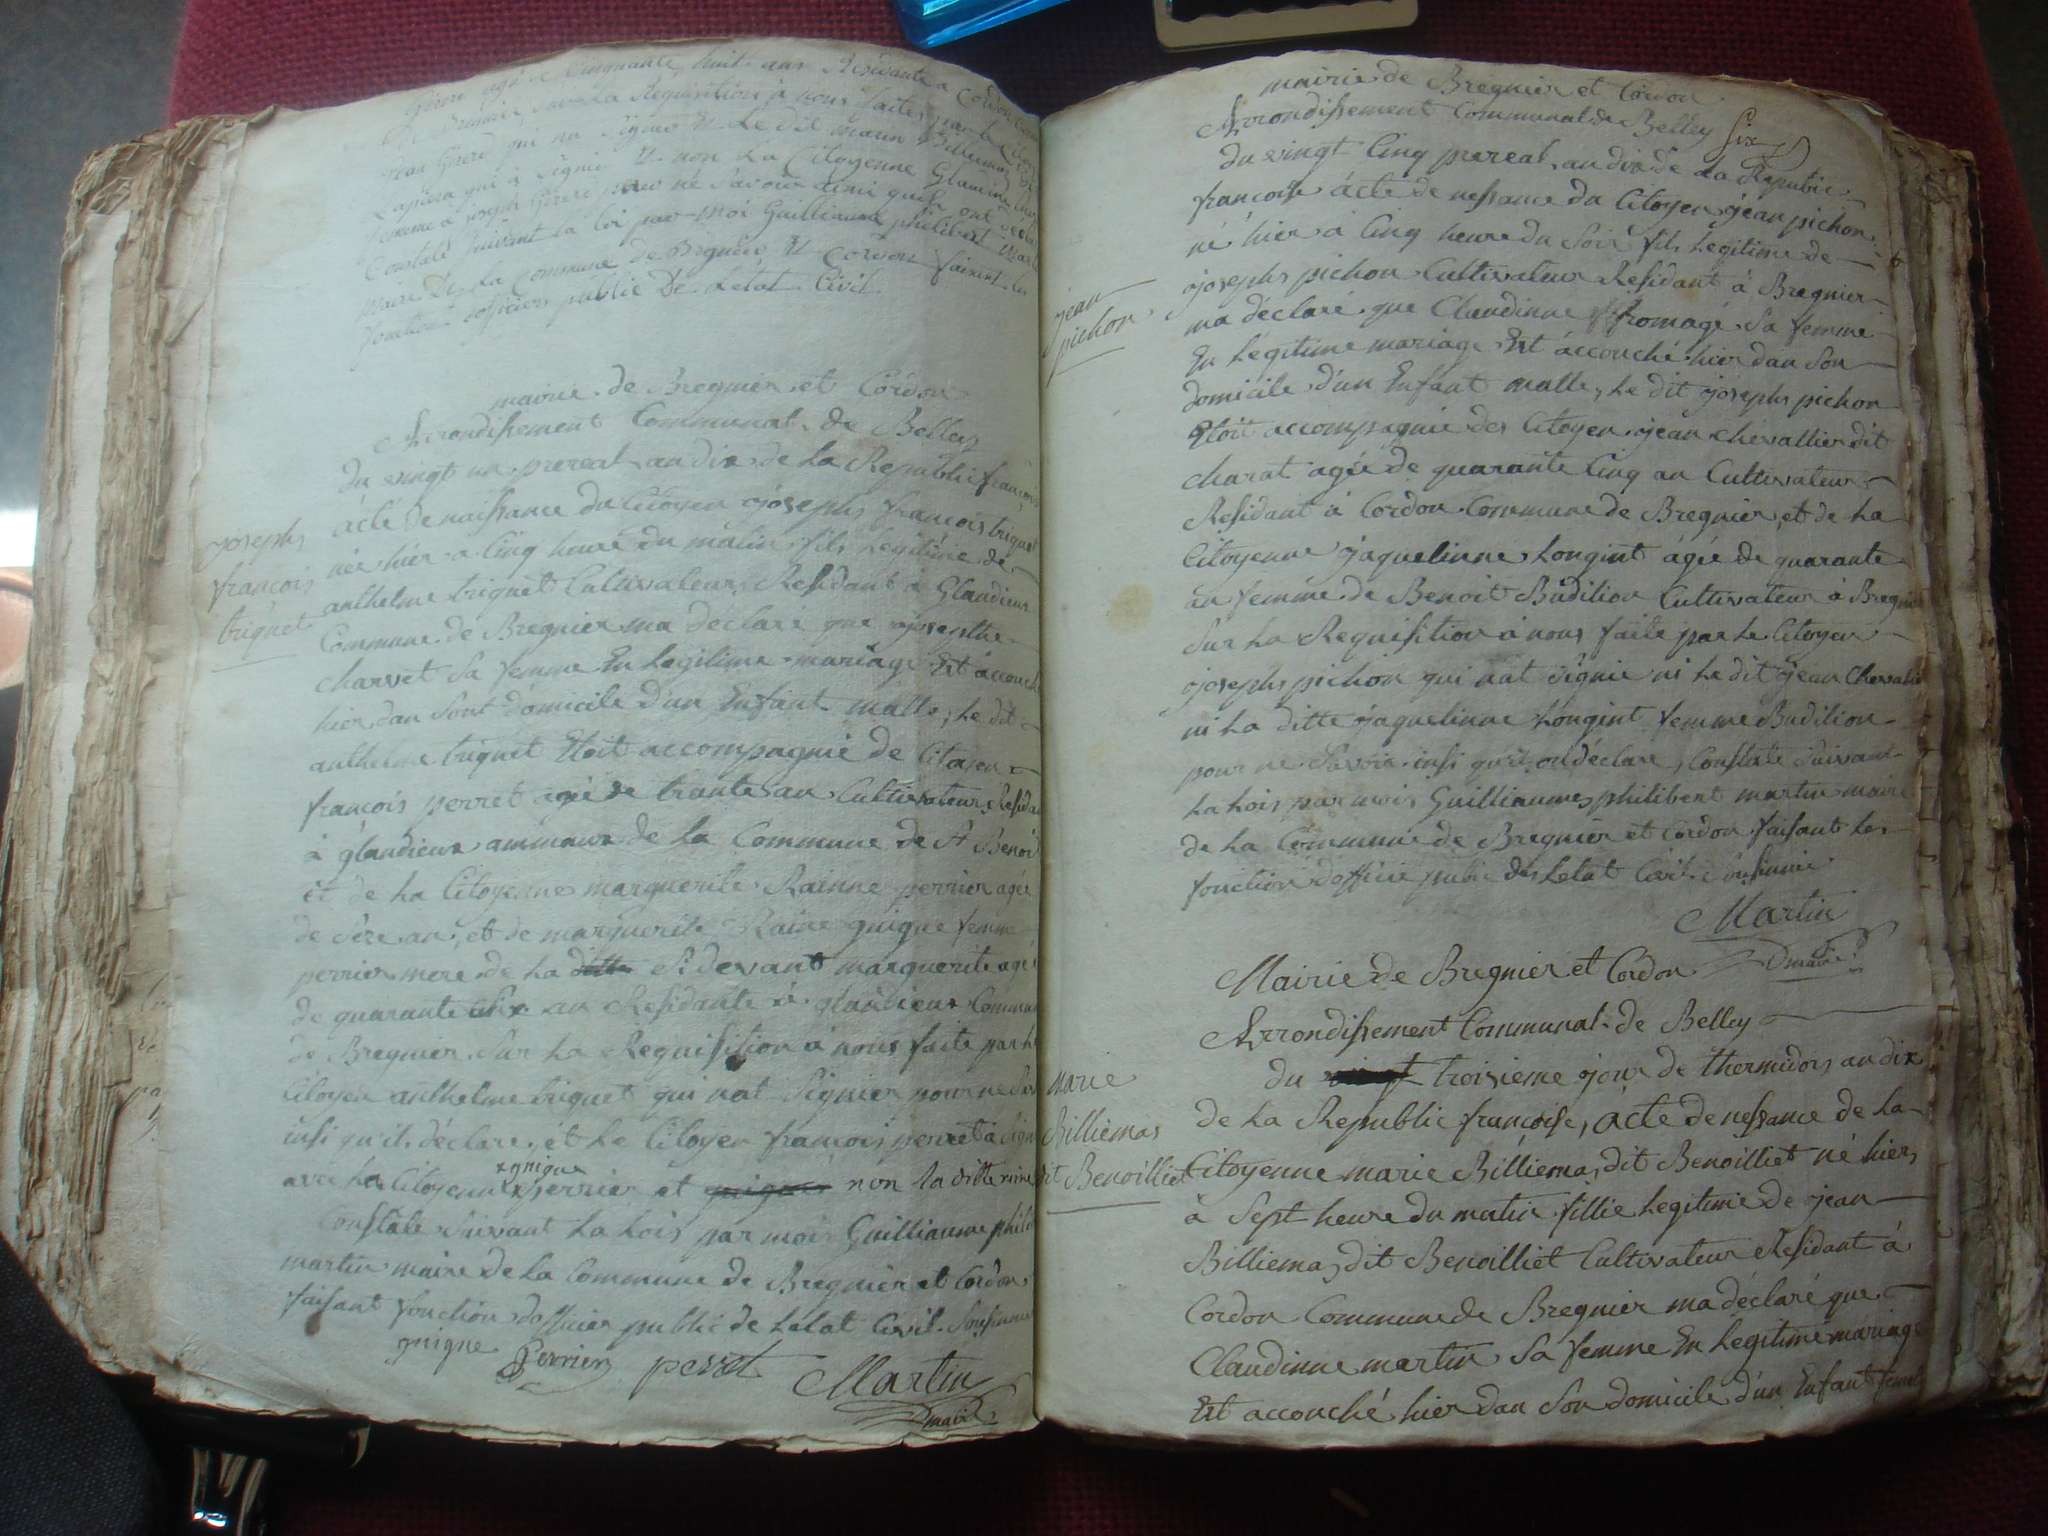 agé de Cinquante huit ans Residante a Cordon
de Bregnier, Sur La Requisition à nous faite, par le
jean qui na Signer Et Le dit
qui à Signié Et non La Citoyenne Glaudine
femme a joseph pour né Savoir qu'il ont
Constaté Suivant la loi par moi Guilliaume philibert Martin
maire De La Commune de Bregnier Et Cordon faisent les
fonctions d'officiers public De Letat Civil
mairie de Bregnier et Cordon
Arrondissement Communal de Belley
du vingt un prereal an dix de La Republic françoise
joseph
françois
triquet
acté de naissance du Citoyen joseph françois triquet
née hier a Cinq heure du matin fils Legitime de
anthelme triquet Cultivateur Residant à Glandieux
Commune de Bregnier ma déclaré que josephte
charvet Sa femme En Legitime mariage Est accouché
hier dan Sont domicile d'un Enfant malle, Le dit
anthelme triquet Etoit accompagnié de Citoyen
françois perret agée de trante an Cultivateur Residant
à glandieux ammaux de la Commune de St Benoit
et de La Citoyenne marguerite Rainne perrier agée
de an, et de marguerite Raine guigue femme
perrier mere de La ditte Sidevant marguerite agée
de quarante six an Residante à glandieux Commune
de Bregnier Sur La Requisition à nous faite par Le
Citoyen anthelme triquet qui nat Signier pour ne Savoir
insi qu'il déclare, ét Le Citoyen françois perret à Signié
avec La Citoyenne guigue perrier et guigue non la ditte reine
Constate Suivant La Lois par mois Guilliaume philibert
martin maire de La Commune de Bregnier et Cordon
faisant fonction d'officier public de Letat Civil Sousinnie
guigne
Perrier perret Martin
maire
mairie de Bregnier et Cordon
Arrondissement Communal de Belley
Six
du vingt Cinq prereal an dix de La Republic
françoise ácte de nessance du Citoyen jean pichon
jean
pichon
né hier à Cinq heure du Soir fils Legitime de
joseph pichon Cultivateur Residant à Bregnier
ma déclaré que Claudinne fromagé Sa femme
En Légitime mariage Est áccouché hier dan Son
domicile d'un Enfant malle, Le dit joseph pichon
Etoit accompagnié des Citoyen jean chevallier dit
charat agée de quarante Cinq an Cultivateur
Residant à Cordon Commune de Bregnier, et de La
Citoyenne jaquelinne Longint ágée de quarante
an femme de Benoit Budilion Cultivateur à Bregnier
Sur La Requisition à nous faite par Le Citoyen
joseph pichon qui nat Signie ni Le dit jean Chevalier
ni La ditte jaquelinne Longint femme Budilion
pour ne Savoir insi qu'il on déclare, Constate Suivant
La Lois par mois Guilliaumes philibert martin maire
de La Commune de Bregnier et Cordon faisant Les
fonction d'officié public des Letat Civil Sousinnie
Martin
maire
Mairie de Bregnier et Cordon
Arrondissement Communal de Belley
du vingt troisieme jour de thermidors an dix
de La Republic françoise, ácte de nessance de La
marie
Billiemas
dit Benoilliet
Citoyenne marie Billiemas dit Benoilliet né hier
à Sept heure du matin fillie Legitime de jean
Billiemas dit Benoilliet Cultivateur Residant à
Cordon Commune de Bregnier ma déclaré que
Claudinne martin Sa femme En Legitime mariage
Est accouché hier dan Son domicile d'un Enfant femelle